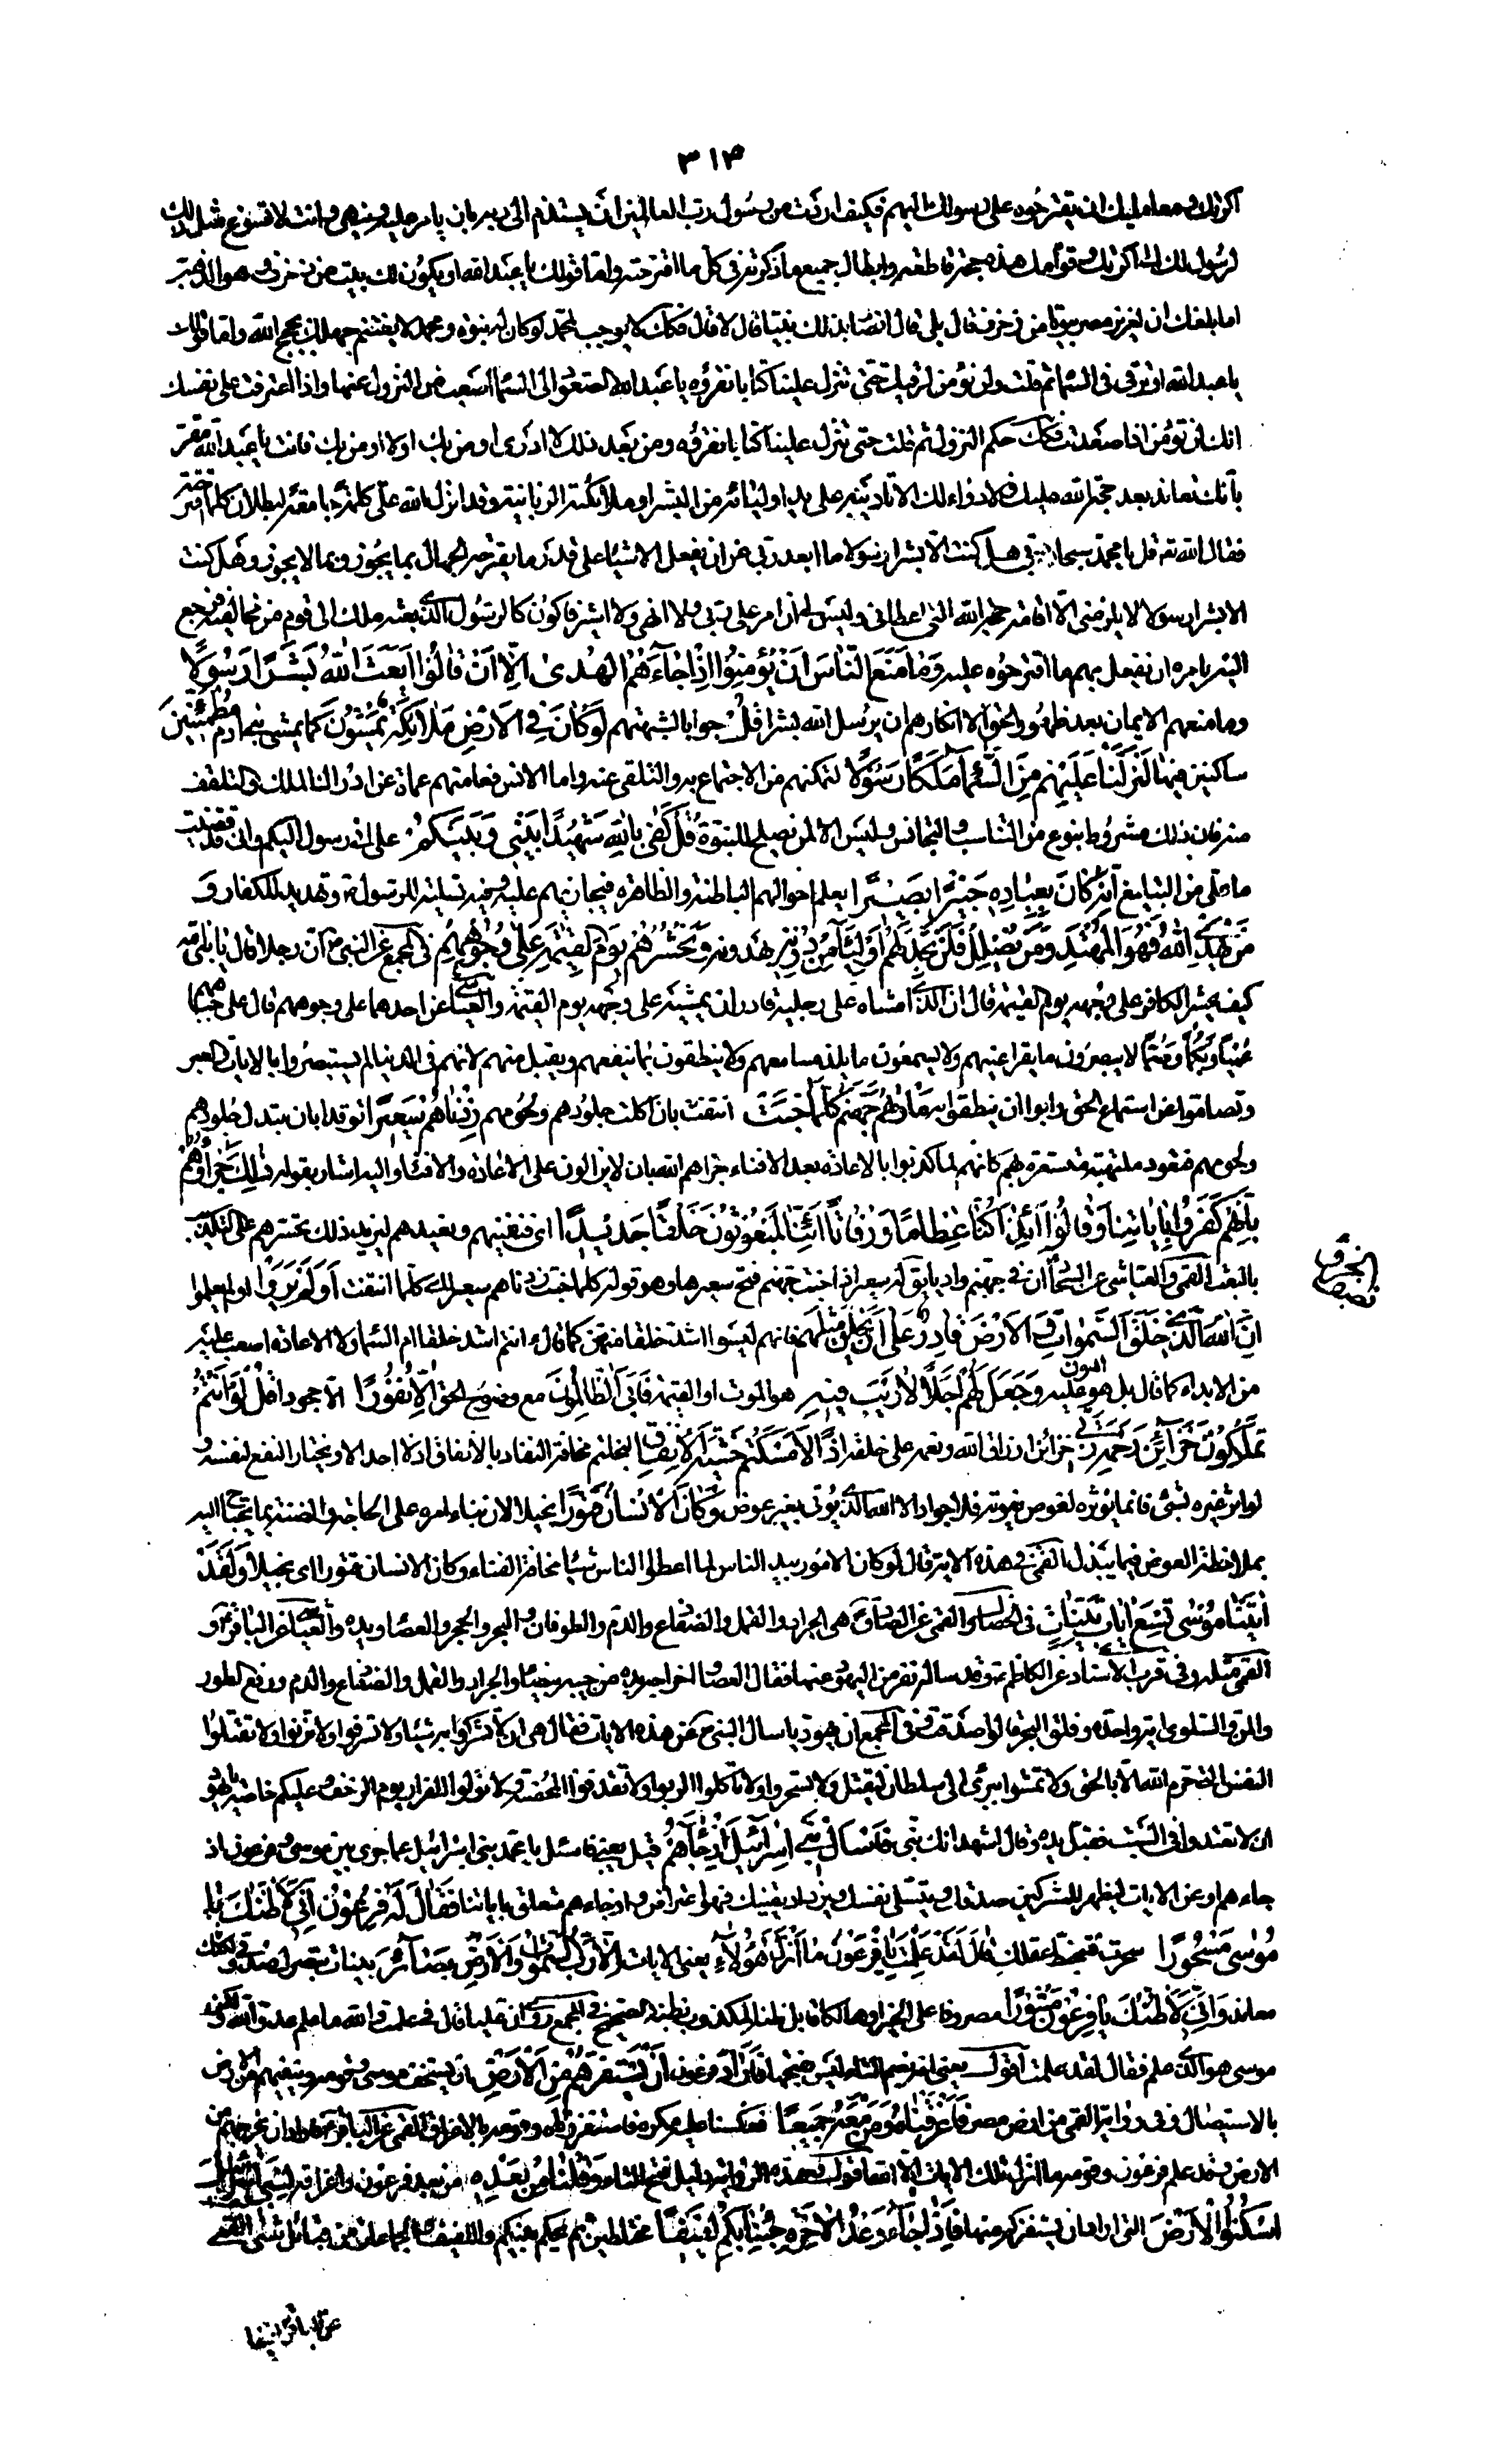 ٣١٣
اكرتك و معامليك ان يقترحوه على رسولك اليهم فكيف اردت من رسول رب العالمين ان يستذم الى ربه بان يامر عليه وينهى وانت لا تسوغ مثل ذلك
لرسولك الى اكرتك وقوامك هذه حجة قاطعة وابطال جميع ما ذكرته في كل ما اقترحته واما قولك يا عبد الله او يكون لك بيت من زخرف وهو الذهب
اما بلغك ان لعزيز مصر بيوتا من زخرف قال بلى قال افصار بذلك نبيا قال لا قال فكذلك لا يوجب لمحمد لو كان له نبوة ومحمد لا يغتنم جهلك بحجج الله واما قولك
يا عبد الله او ترقى في السماء ثم قلت ولن نؤمن لرقيك حتى تنزل علينا كتابا نقرؤه يا عبد الله الصعود الى السماء اصعب من النزول عنها واذا اعترفت على نفسك
انك لن تؤمن اذا صعدت فكذلك حكم النزول ثم قلت حتى تنزل علينا كتابا نقرؤه ومن بعد ذلك لا ادري اومن بك او لا اومن بك فانت يا عبد الله مقر
بانك تعاند بعد حجة الله عليك فلا دواء لك الا تاديبه على يد اوليائه من البشر او ملائكته الزبانية وقد انزل الله علي كلمة جامعة لبطلان كلما اقترحته
فقال الله تع قل يا محمد سبحان ربي هل كنت الا بشرا رسولا ما ابعد ربي عن ان يفعل الاشياء على قدر ما يقترحه الجهال بما يجوز وبما لا يجوز وهل كنت
الا بشرا رسولا لا يلزمني الا اقامة حجة الله التي اعطاني وليس لي ان امر على ربي ولا انهى ولا اشير فاكون كالرسول الذي بعثه ملك الى قوم من مخالفيه فرجع
اليه يامره ان يفعل بهم ما اقترحوه عليه وَمَا مَنَعَ النَّاسَ اَنْ يُؤْمِنُوا اِذْ جَاءَهُمُ الْهُدٰى اِلَّا اَنْ قَالُوا اَبَعَثَ اللّٰهُ بَشَرًا رَسُولًا
وما منعهم الايمان بعد ظهور الحق الا انكارهم ان يرسل الله بشرا قُلْ جوابا لشبهتهم لَوْ كَانَ فِي الْاَرْضِ مَلَائِكَةٌ يَمْشُونَ كما يمشي بنو ادم مُطْمَئِنِّينَ
ساكنين فيها لَنَزَّلْنَا عَلَيْهِمْ مِنَ السَّمَاءِ مَلَكًا رَسُولًا لتمكنهم من الاجتماع به والتلقي عنه واما الانس فعامتهم عماة عن ادراك الملك والتلقف
منه فان ذلك مشروط بنوع من التناسب والتجانس وليس الا لمن يصلح للنبوة قُلْ كَفٰى بِاللّٰهِ شَهِيدًا بَيْنِي وَبَيْنَكُمْ على اني رسول اليكم واني قد قضيت
ما علي من التبليغ اِنَّهُ كَانَ بِعِبَادِهِ خَبِيرًا بَصِيرًا يعلم احوالهم الباطنة والظاهرة فيجازيهم عليه وفيه تسلية للرسول ص وتهديد للكفار وَ
مَنْ يَهْدِ اللّٰهُ فَهُوَ الْمُهْتَدِ وَمَنْ يُضْلِلْ فَلَنْ تَجِدَ لَهُمْ اَوْلِيَاءَ مِنْ دُونِهِ يهدونه وَنَحْشُرُهُمْ يَوْمَ الْقِيٰمَةِ عَلٰى وُجُوهِهِمْ في المجمع عن النبي ص ان رجلا قال يا نبي الله
كيف يحشر الكافر على وجهه يوم القيمة قال ان الذي امشاه على رجليه قادر ان يمشيه على وجهه يوم القيمة والعياشي عن احدهما على وجوههم قال على جباههم
عُمْيًا وَبُكْمًا وَصُمًّا لا يبصرون ما يقر اعينهم ولا يسمعون ما يلذ مسامعهم ولا ينطقون بما ينفعهم ويقبل منهم لانهم في الدنيا لم يستبصروا بالايات والعبر
وتصاموا عن استماع الحق وابوا ان ينطقوا به مَأْوٰيهُمْ جَهَنَّمُ كُلَّمَا خَبَتْ انتفت بان اكلت جلودهم ولحومهم زِدْنَاهُمْ سَعِيرًا توقدا بان تبدل جلودهم
ولحومهم فتعود ملتهبة مستعرة بهم كانهم لما كذبوا بالاعادة بعد الافناء جزاهم الله بان لا يزالون على الاعادة والافناء واليه اشار بقوله ذٰلِكَ جَزَاؤُهُمْ
بِاَنَّهُمْ كَفَرُوا بِاٰيَاتِنَا وَقَالُوا اَئِذَا كُنَّا عِظَامًا وَرُفَاتًا اَئِنَّا لَمَبْعُوثُونَ خَلْقًا جَدِيدًا اي فنفنيهم ونعيدهم ليزيد ذلك تحسرهم على التكذيب
بالبعث القمي والعياشي عن السجاد ان في جهنم واديا يق له سعير اذا خبت جهنم فتح سعيرها وهو قوله كلما خبت زدناهم سعيرا اي كلما انتفت اَوَلَمْ يَرَوْا اولم يعلموا
اَنَّ اللّٰهَ الَّذِي خَلَقَ السَّمٰوَاتِ وَالْاَرْضَ قَادِرٌ عَلٰى اَنْ يَخْلُقَ مِثْلَهُمْ فانهم ليسوا اشد خلقا منهن كما قال ءانتم اشد خلقا ام السماء ولا الاعادة اصعب عليه
من الابداء كما قال بل هو اهون عليه وَجَعَلَ لَهُمْ اَجَلًا لَا رَيْبَ فِيهِ هو الموت او القيمة فَاَبَى الظَّالِمُونَ مع وضوح الحق اِلَّا كُفُورًا الا جحودا قُلْ لَوْ اَنْتُمْ
تَمْلِكُونَ خَزَائِنَ رَحْمَةِ رَبِّي خزائن ارزاق الله ونعمه على خلقه اِذًا لَاَمْسَكْتُمْ خَشْيَةَ الْاِنْفَاقِ لبخلتم مخافة النفاد بالانفاق اذ لا احد الا ويختار النفع لنفسه و
لو اثر غيره بشئ فانما يؤثره لعوض يفوقه فلا جواد الا الله الذي يؤتى بغير عوض وَكَانَ الْاِنْسَانُ قَتُورًا بخيلا لان بناء امره على الحاجة والضنة بما يحتاج اليه
بملاحظة العوض فيما يبذل القمي في هذه الاية قال لو كان الامور بيد الناس لما اعطوا الناس شيئا مخافة الفناء وكان الانسان قتورا اي بخيلا وَلَقَدْ
اٰتَيْنَا مُوسٰى تِسْعَ اٰيَاتٍ بَيِّنَاتٍ في الخصال والقمي عن الصادق هي الجراد والقمل والضفادع والدم والطوفان والبحر والحجر والعصا ويده والعياشي عن الباقر ع و
القمي مثله وفي قرب الاسناد عن الكاظم ع وقد ساله نفر من اليهود عنها فقال العصا واخراجه يده من جيبه بيضاء والجراد والقمل والضفادع والدم ورفع الطور
والمن والسلوى اية واحدة وفلق البحر قالوا صدقت وفي المجمع ان يهوديا سال النبي ص عن هذه الايات فقال هي ان لا تشركوا به شيئا ولا تسرفوا ولا تزنوا ولا تقتلوا
النفس التي حرم الله الا بالحق ولا تمشوا ببرئ الى سلطان ليقتل ولا تسحروا ولا تأكلوا الربوا ولا تقذفوا المحصنة ولا تولوا للفرار يوم الزحف وعليكم خاصة يا يهود
ان لا تعتدوا في السبت فقبل يده وقال اشهد انك نبي فَاسْئَلْ بَنِي اِسْرَائِيلَ اِذْ جَاءَهُمْ قيل يعني فاسئل يا محمد بني اسرائيل عما جرى بين موسى وفرعون اذ
جاءهم او عن الايات ليظهر للمشركين صدقك ويتسلى نفسك ويزداد يقينك فهو اعتراض واذ جاءهم متعلق باياتنا فَقَالَ لَهُ فِرْعَوْنُ اِنِّي لَاَظُنُّكَ يَا
مُوسٰى مَسْحُورًا سحرت فتخبط عقلك قَالَ لَقَدْ عَلِمْتَ يا فرعون مَا اَنْزَلَ هٰؤُلَاءِ يعني الايات اِلَّا رَبُّ السَّمٰوَاتِ وَالْاَرْضِ بَصَائِرَ بينات تبصرك صدقي ولكنك
معاند وَاِنِّي لَاَظُنُّكَ يَا فِرْعَوْنُ مَثْبُورًا مصروفا على الخير او هالكا قابل ظنه المكذوب بظنه الصحيح في المجمع روي ان عليا قال في علمت والله ما علم عدو الله ولكن
موسى هو الذي علم فقال لقد علمت اقول يعني انه بضم التاء ليس بفتحها فَاَرَادَ فرعون اَنْ يَسْتَفِزَّهُمْ مِنَ الْاَرْضِ ان يستخف موسى وقومه وينفيهم من الارض
بالاستيصال وفي رواية القمي من ارض مصر فَاَغْرَقْنَاهُ وَمَنْ مَعَهُ جَمِيعًا فعكسنا عليه مكره فاستفززناه وقومه بالاغراق القمي عن الباقر ع فاراد ان يخرجهم من
الارض وقد علم فرعون وقومه ما انزل تلك الايات الا الله اقول هذه الرواية دليل فتح التاء وَقُلْنَا مِنْ بَعْدِهِ من بعد فرعون واغراقه لِبَنِي اِسْرَائِيلَ
اسْكُنُوا الْاَرْضَ التي اراد ان يستفزكم منها فَاِذَا جَاءَ وَعْدُ الْاٰخِرَةِ جِئْنَا بِكُمْ لَفِيفًا مختلطين ثم نحكم بينكم واللفيف الجماعات من قبائل شتى القمي
عن الباقر لفيفا